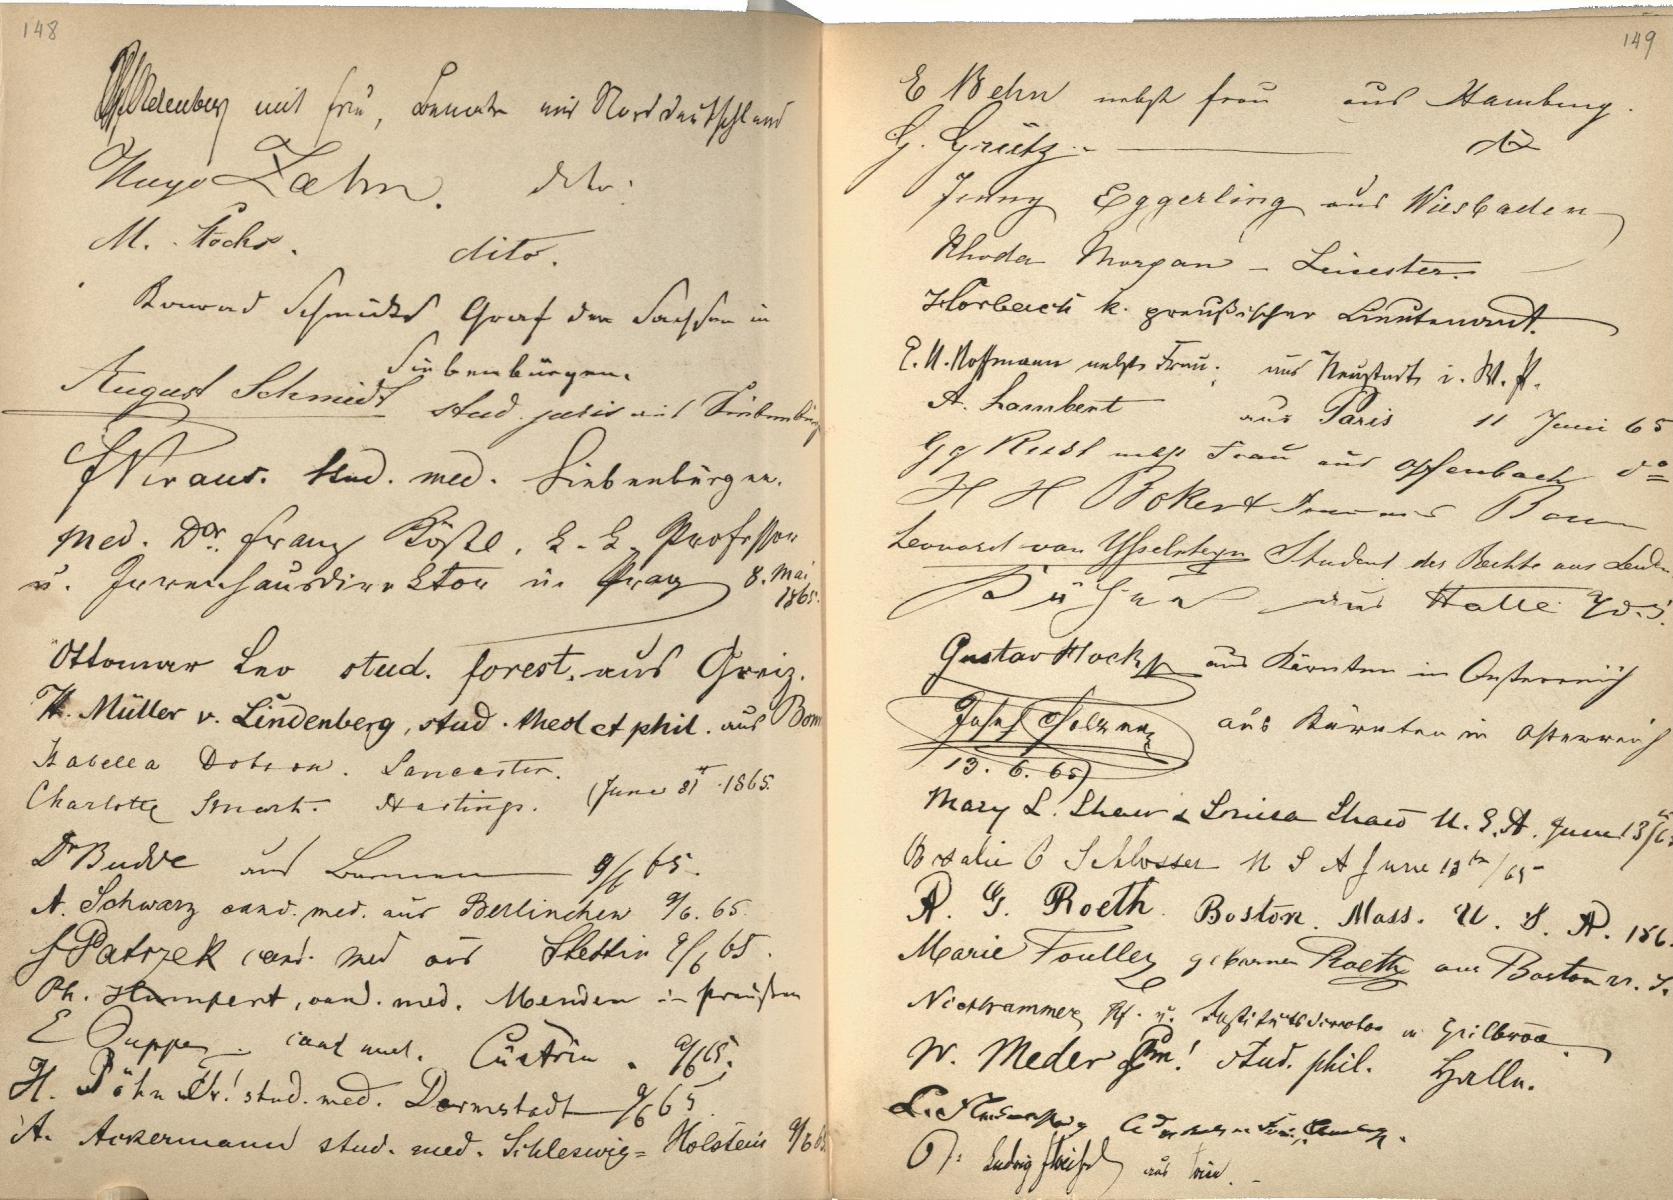 148
mit Frau, Beamte aus Norddeutschland
Hugo Zahn. dito:
M. Fuchs. dito.
Konrad Schmidt Graf der Sachsen in
Siebenbürgen.
August Schmidt stud. juris aus Siebenbürg
Kraus. stud. med. Siebenbürgen.
Med. Dor. Franz Köstl, k. k. Professor
u. Irrenhausdirektor in Prag 8. Mai
1865.
Ottomar Leo stud. forest. aus Greiz.
H. Müller v. Lindenberg, stud. theol et phil. aus Bonn
Isabella Dobson. Lancaster.
Charlotte Smart. Hastings. (June 8th. 1865.
Dr Budde aus Barmen 9/6 65.
A. Schwarz cand. med. aus Berlinchen 9/6. 65.
Patrzek cand. med aus Stettin 9/6 65.
Ph. Humpert, cand. med. Menden in Preußen
E cand med. Cüstrin. 9/6 65.
H. Böhn stud. med. Darmstadt 9/6 65.
A. Ackermann stud. med. Schleswig=Holstein 9/6 65
149
E Behn nebst Frau aus Hamburg.
G. Grütz. — do
Jenny Eggerling aus Wiesbaden
Rhoda Morgan – Leicester.
Horbach k. preußischer Lieutenant.
E. H. Hoffmann nebst Frau. aus Neustadt i. W. Pr.
A. Lambert aus Paris 11 Juni 65
Gg nebst Frau aus Offenbach do
H H Boker
Leonard van Ysselsteyn Student der Rechte aus Leiden
aus Halle
Gustav Hock aus Kärnten in Oesterreich
Josef aus Kärnten in Osterreich
13. 6. 65
Mary L. Shaw & Louisa Shaw U. S. A. June 13th/65
Rosalie C Schlosser U S A June 13th/65
R. G. Roeth. Boston. Mass. U. S. A. 186
Marie Foulley geborne Roeth aus Boston U. S.
Niethammer, Rf. u. Institutsdirector in Heilbronn.
W. Meder stud. phil. Halle.
L.
O. Ludwig aus